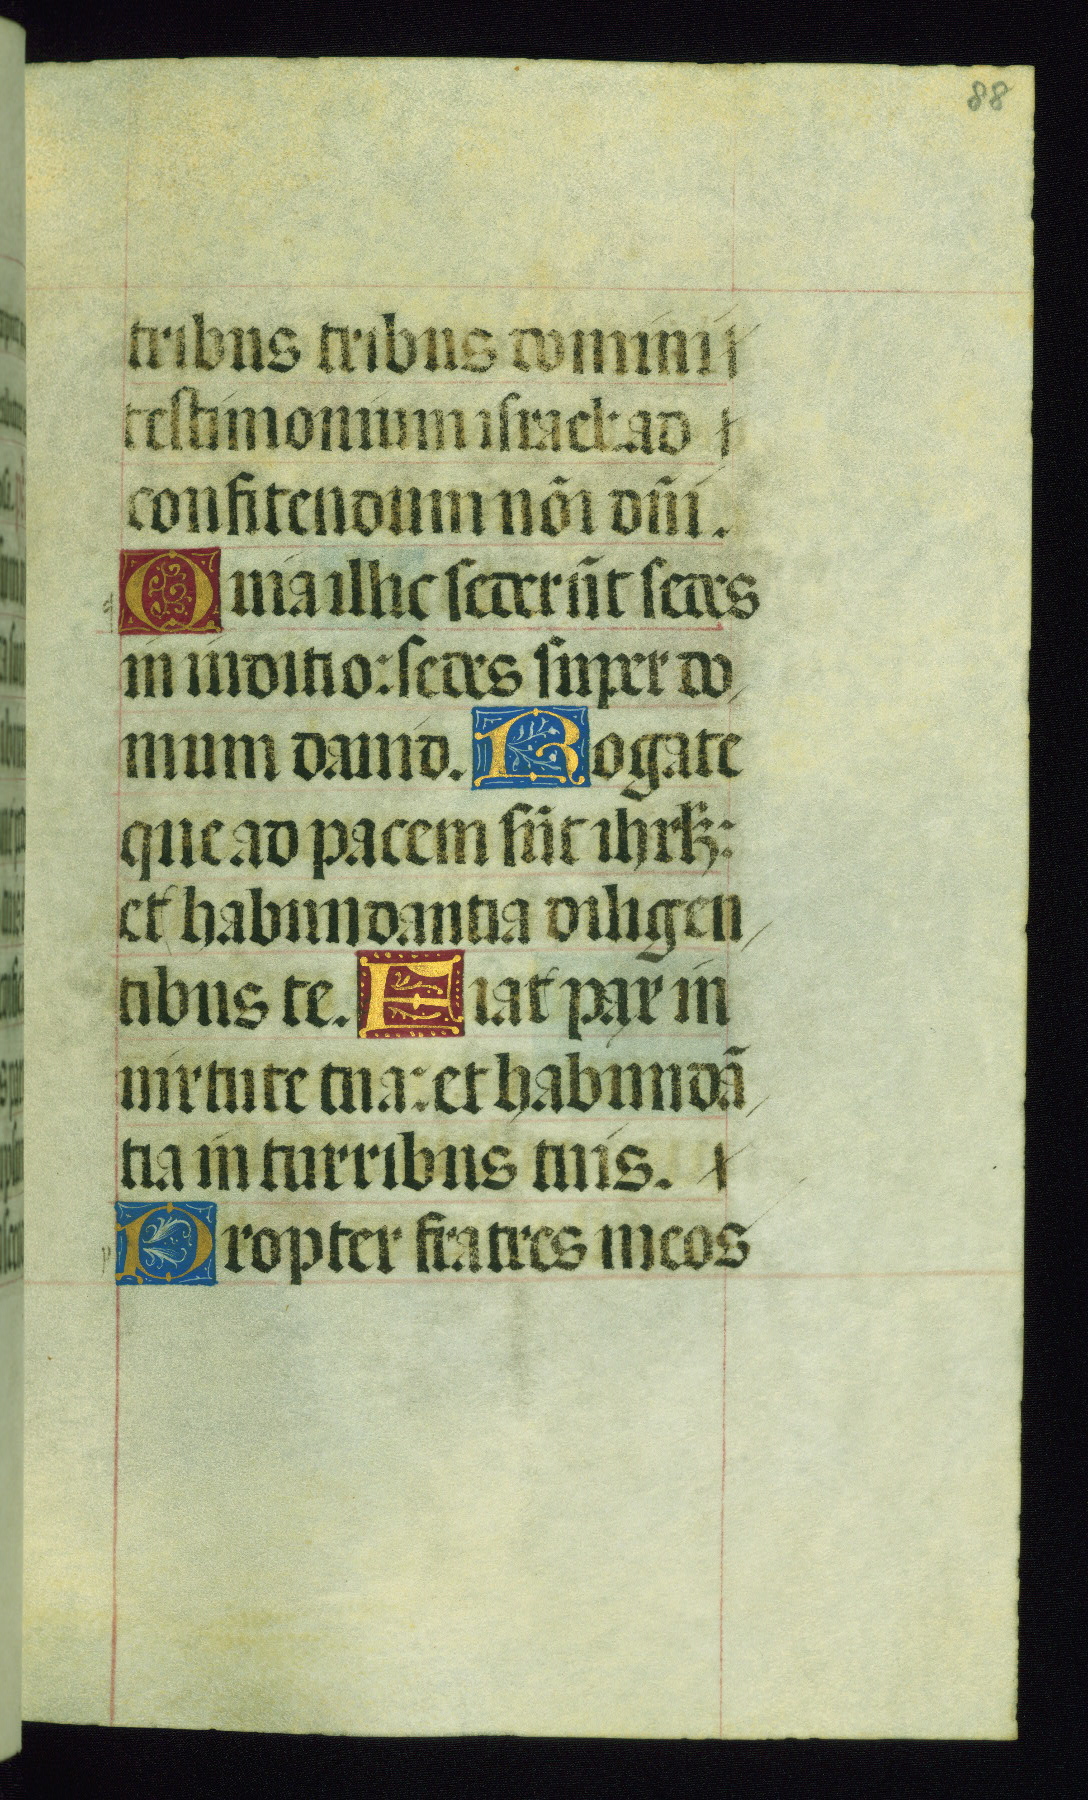 88
tribus tribus domini
testimonium israel: ad
confitendum nõi dñi.
Quia illic sederũt sedes
in iuditio: sedes super do
mum dauid. Rogate
que ad pacem sũt ihrłz:
et habundantia diligen
tibus te. Fiat pax in
uirtute tua: et habundã
tia in turribus tuis.
Propter fratres meos